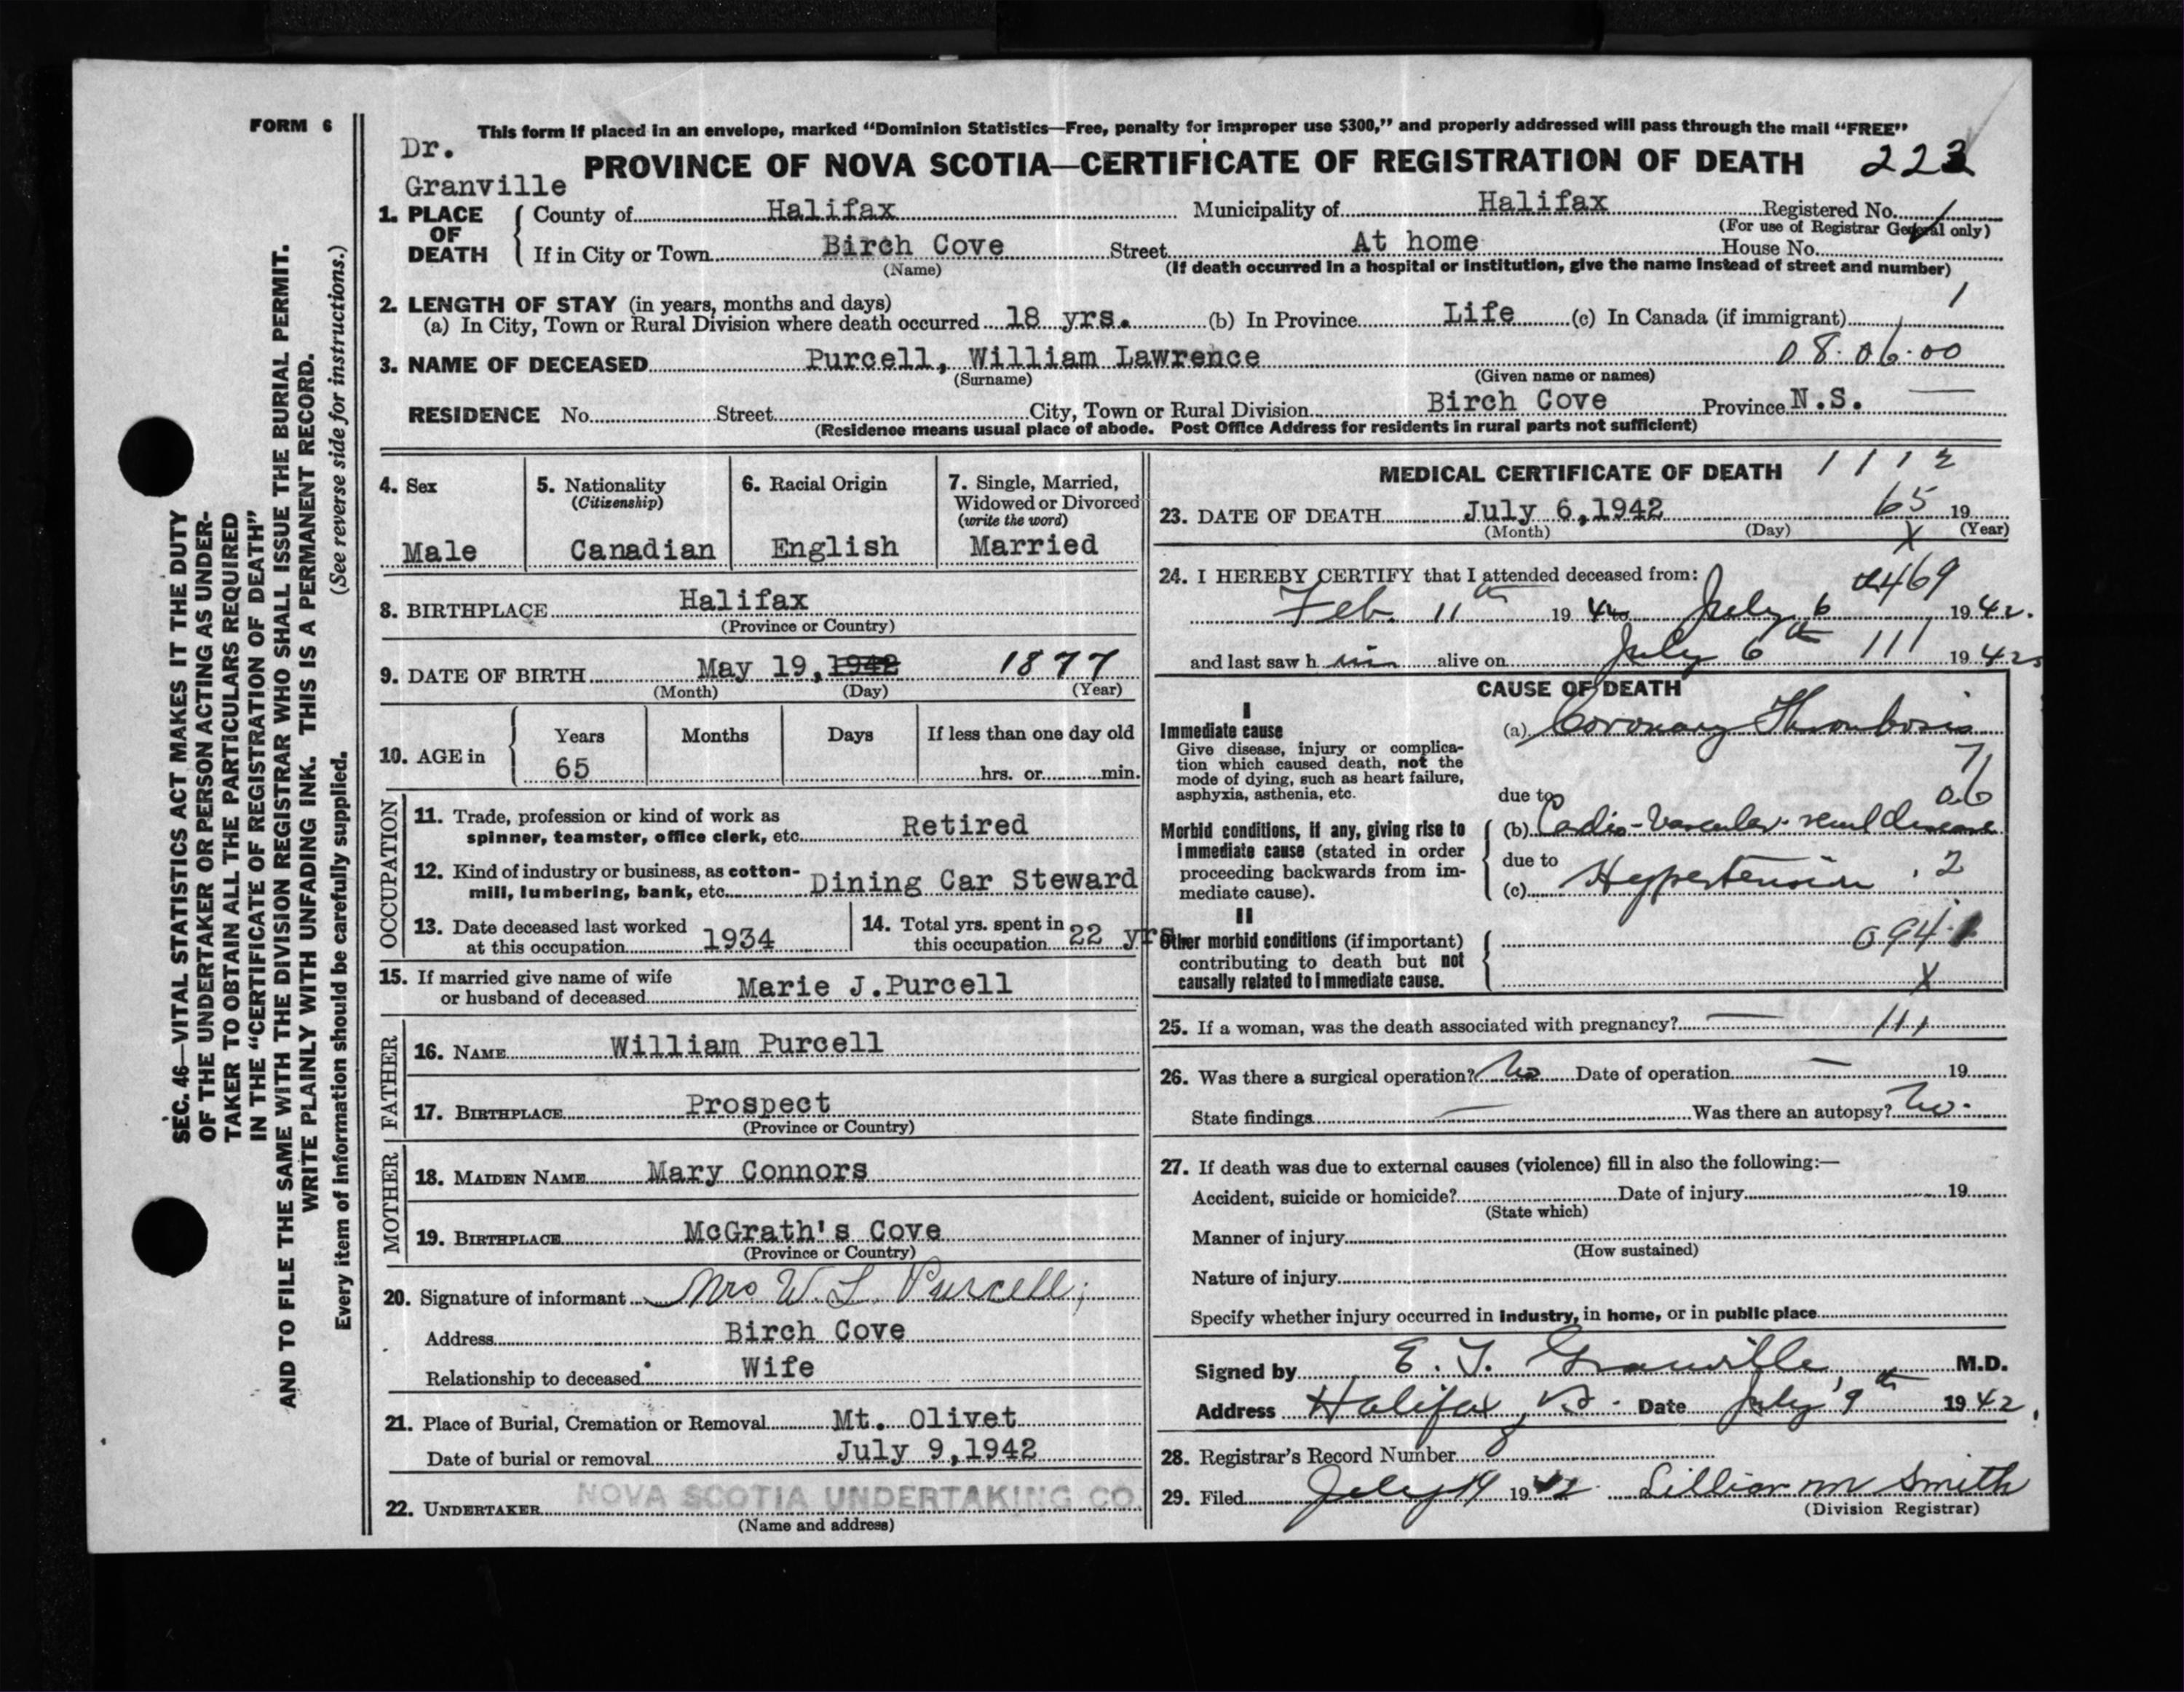 FORM 6
This form if placed in an envelope, marked “Dominion Statistics—Free, penalty for improper use $300,” and properly addressed will pass through the mail “FREE”
Dr. Granville
PROVINCE OF NOVA SCOTIA—CERTIFICATE OF REGISTRATION OF DEATH 223
1. PLACE OF DEATH
County of Halifax Municipality of Halifax Registered No.
(For use of Registrar General only)
If in City or Town Birch Cove Street At home House No.
(Name) (If death occurred in a hospital or institution, give the name instead of street and number)
2. LENGTH OF STAY (in years, months and days) 1
(a) In City, Town or Rural Division where death occurred 18 yrs. (b) In Province Life (c) In Canada (if immigrant)
3. NAME OF DECEASED Purcell, William Lawrence 08.06.00
(Surname) (Given name or names)
RESIDENCE No. Street City, Town or Rural Division Birch Cove Province N.S.
(Residence means usual place of abode. Post Office Address for residents in rural parts not sufficient)
4. Sex
Male
5. Nationality
(Citizenship)
Canadian
6. Racial Origin
English
7. Single, Married,
Widowed or Divorced
(write the word)
Married
8. BIRTHPLACE Halifax
(Province or Country)
9. DATE OF BIRTH May 19, 1942 1877
(Month) (Day) (Year)
10. AGE in
Years Months Days If less than one day old
65 hrs. or min.
OCCUPATION
11. Trade, profession or kind of work as
spinner, teamster, office clerk, etc. Retired
12. Kind of industry or business, as cotton-
mill, lumbering, bank, etc. Dining Car Steward
13. Date deceased last worked
at this occupation 1934
14. Total yrs. spent in
this occupation 22 yrs.
15. If married give name of wife
or husband of deceased Marie J.Purcell
FATHER
16. NAME William Purcell
17. BIRTHPLACE Prospect
(Province or Country)
MOTHER
18. MAIDEN NAME Mary Connors
19. BIRTHPLACE McGrath's Cove
(Province or Country)
20. Signature of informant Mrs W. L. Purcell
Address Birch Cove
Relationship to deceased Wife
21. Place of Burial, Cremation or Removal Mt. Olivet
Date of burial or removal July 9,1942
22. UNDERTAKER NOVA SCOTIA UNDERTAKING CO
(Name and address)
MEDICAL CERTIFICATE OF DEATH 1112
23. DATE OF DEATH July 6,1942 65 19
(Month) (Day) X (Year)
24. I HEREBY CERTIFY that I attended deceased from: 469
Feb. 11th 19 July 6 1942.
and last saw h im alive on July 6th 111 1942
CAUSE OF DEATH
I
Immediate cause
Give disease, injury or complica-
tion which caused death, not the
mode of dying, such as heart failure,
asphyxia, asthenia, etc.
(a) Coronary Thrombosis
due to
Morbid conditions, if any, giving rise to
immediate cause (stated in order
proceeding backwards from im-
mediate cause).
(b) Cardio-Vascular-renal disease
due to
(c) Hypertension . 2
II
Other morbid conditions (if important)
contributing to death but not
causally related to immediate cause.
094.1
X
25. If a woman, was the death associated with pregnancy? — 111
26. Was there a surgical operation? No Date of operation — 19
State findings — Was there an autopsy? No.
27. If death was due to external causes (violence) fill in also the following:—
Accident, suicide or homicide? Date of injury 19
(State which)
Manner of injury
(How sustained)
Nature of injury
Specify whether injury occurred in industry, in home, or in public place
Signed by E. J. Granville M.D.
Address Halifax, N.S. Date July 9th 1942.
28. Registrar's Record Number 8
29. Filed July 19 1942 Lillian M Smith
(Division Registrar)
SEC. 46—VITAL STATISTICS ACT MAKES IT THE DUTY
OF THE UNDERTAKER OR PERSON ACTING AS UNDER-
TAKER TO OBTAIN ALL THE PARTICULARS REQUIRED
IN THE “CERTIFICATE OF REGISTRATION OF DEATH”
AND TO FILE THE SAME WITH THE DIVISION REGISTRAR WHO SHALL ISSUE THE BURIAL PERMIT.
WRITE PLAINLY WITH UNFADING INK. THIS IS A PERMANENT RECORD.
Every item of information should be carefully supplied. (See reverse side for instructions.)